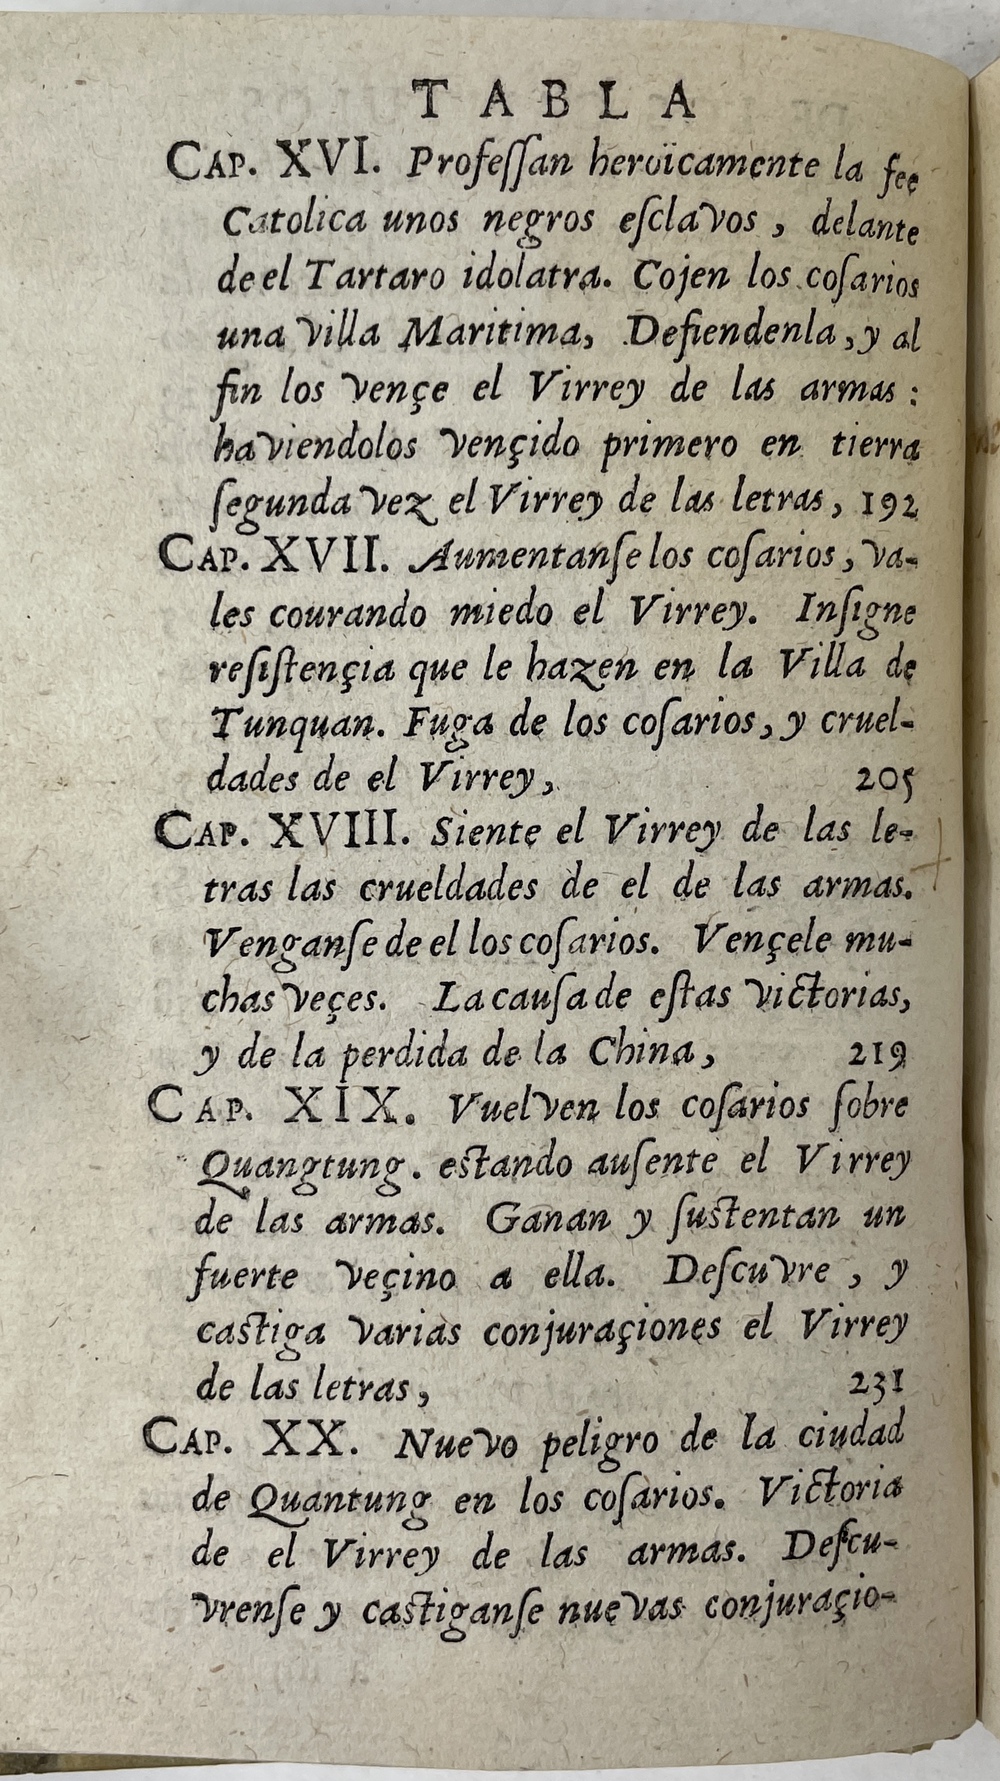 TABLA
CAP. XVI. Profeſſan heroïcamente la fee
Catolica unos negros eſclavos, delante
de el Tartaro idolatra. Cojen los coſarios
una villa Maritima, Defiendenla, y al
fin los vençe el Virrey de las armas:
haviendolos vençido primero en tierra
ſegunda vez el Virrey de las letras, 192
CAP. XVII. Aumentanſe los coſarios, va-
les courando miedo el Virrey. Inſigne
reſiſtençia que le hazen en la Villa de
Tunquan. Fuga de los coſarios, y cruel-
dades de el Virrey, 205
CAP. XVIII. Siente el Virrey de las le-
tras las crueldades de el de las armas.
Venganſe de el los coſarios. Vençele mu-
chas veçes. La cauſa de eſtas victorias,
y de la perdida de la China, 219
CAP. XIX. Vuelven los coſarios ſobre
Quangtung. eſtando auſente el Virrey
de las armas. Ganan y ſuſtentan un
fuerte veçino a ella. Deſcuvre, y
caſtiga varias conjuraçiones el Virrey
de las letras, 231
CAP. XX. Nuevo peligro de la ciudad
de Quantung en los coſarios. Victoria
de el Virrey de las armas. Deſcu-
vrenſe y caſtiganſe nuevas conjuraçio-